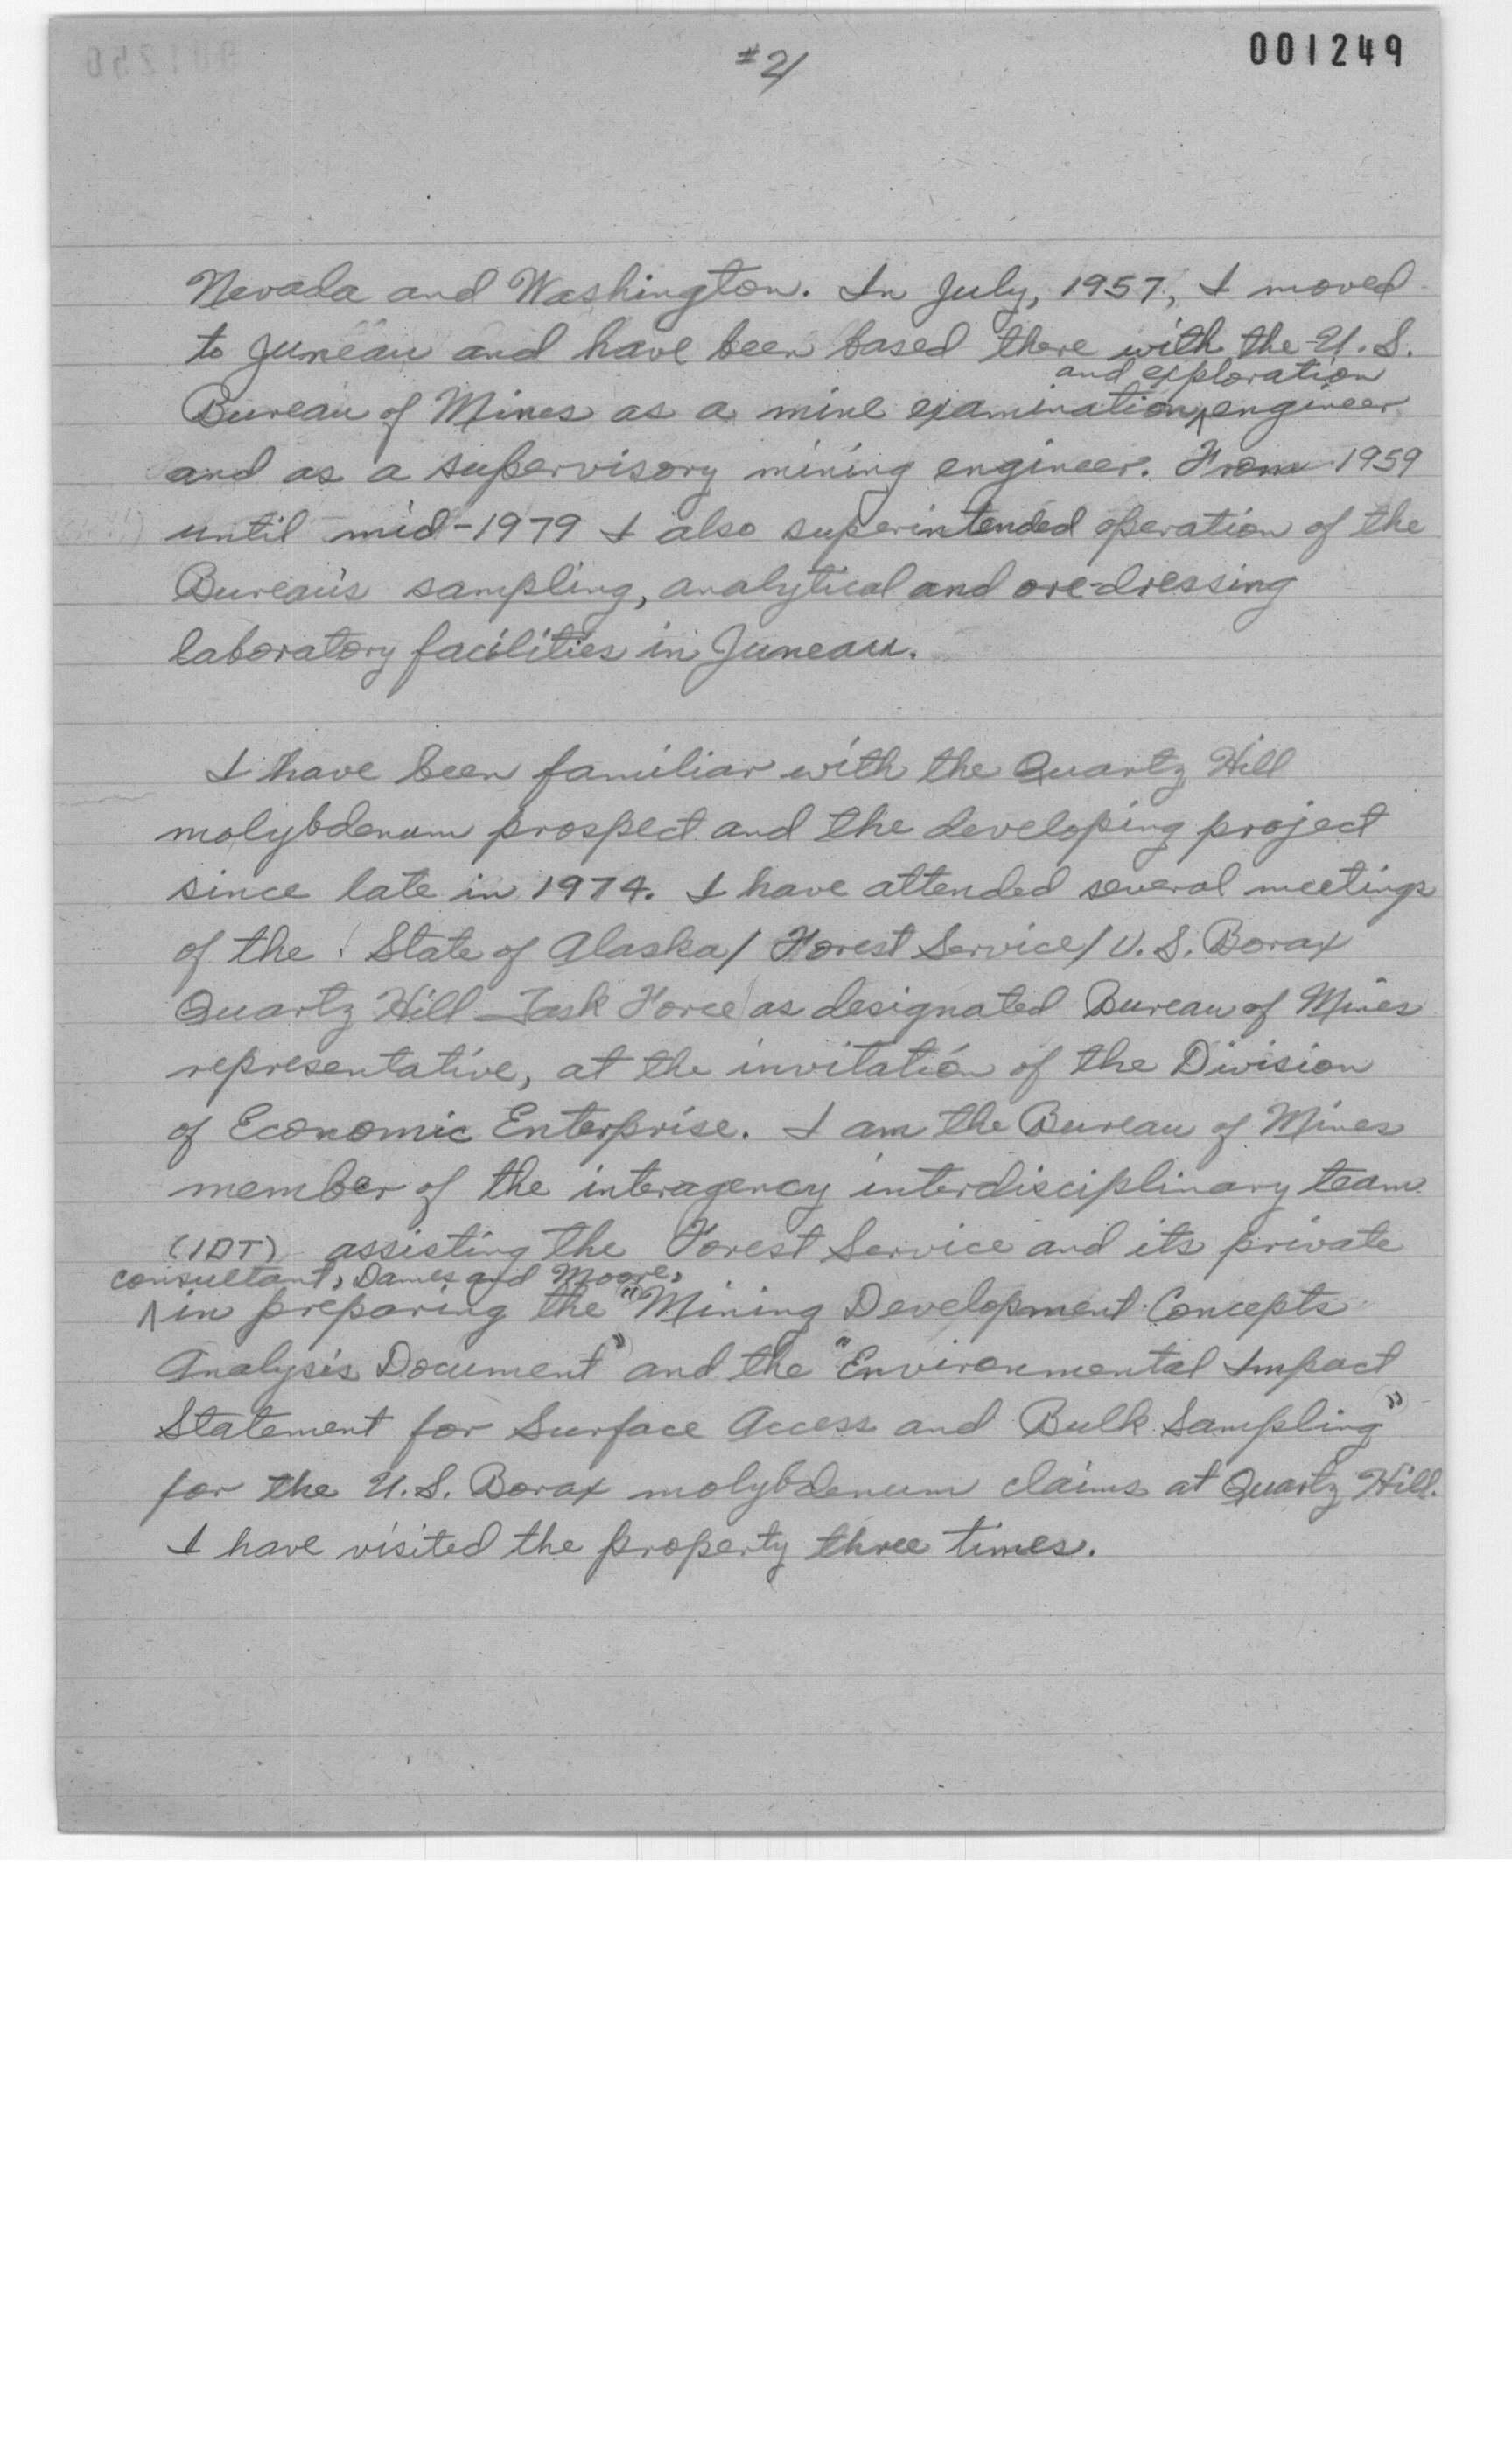 #2/
001249
Nevada and Washington. In July, 1957, I moved
to Juneau and have been based there with the U.S.
and exploration
Bureau of Mines as a mine examination ^ engineer
and as a supervisory mining engineer. From 1959
until mid-1979 I also superintended operation of the
Bureau's sampling, analytical and ore-dressing
laboratory facilities in Juneau.
I have been familiar with the Quartz Hill
molybdenum prospect and the developing project
since late in 1974. I have attended several meetings
of the State of Alaska/ Forest Service/ U.S. Borax
Quartz Hill Task Force as designated Bureau of Mines
representative, at the invitation of the Division
of Economic Enterprise. I am the Bureau of Mines
member of the interagency interdisciplinary team
(IDT) assisting the Forest Service and its private
consultant, Dames and Moore,
^ in preparing the "Mining Development Concepts
Analysis Document" and the "Environmental Impact
Statement for Surface Access and Bulk Sampling"
for the U.S. Borax molybdenum claims at Quartz Hill.
I have visited the property three times.